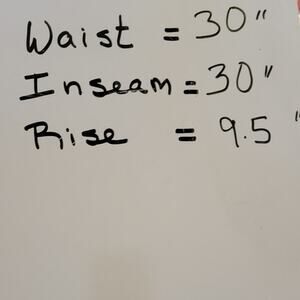 Waist = 30"
Inseam = 30"
Rise = 9.5 "